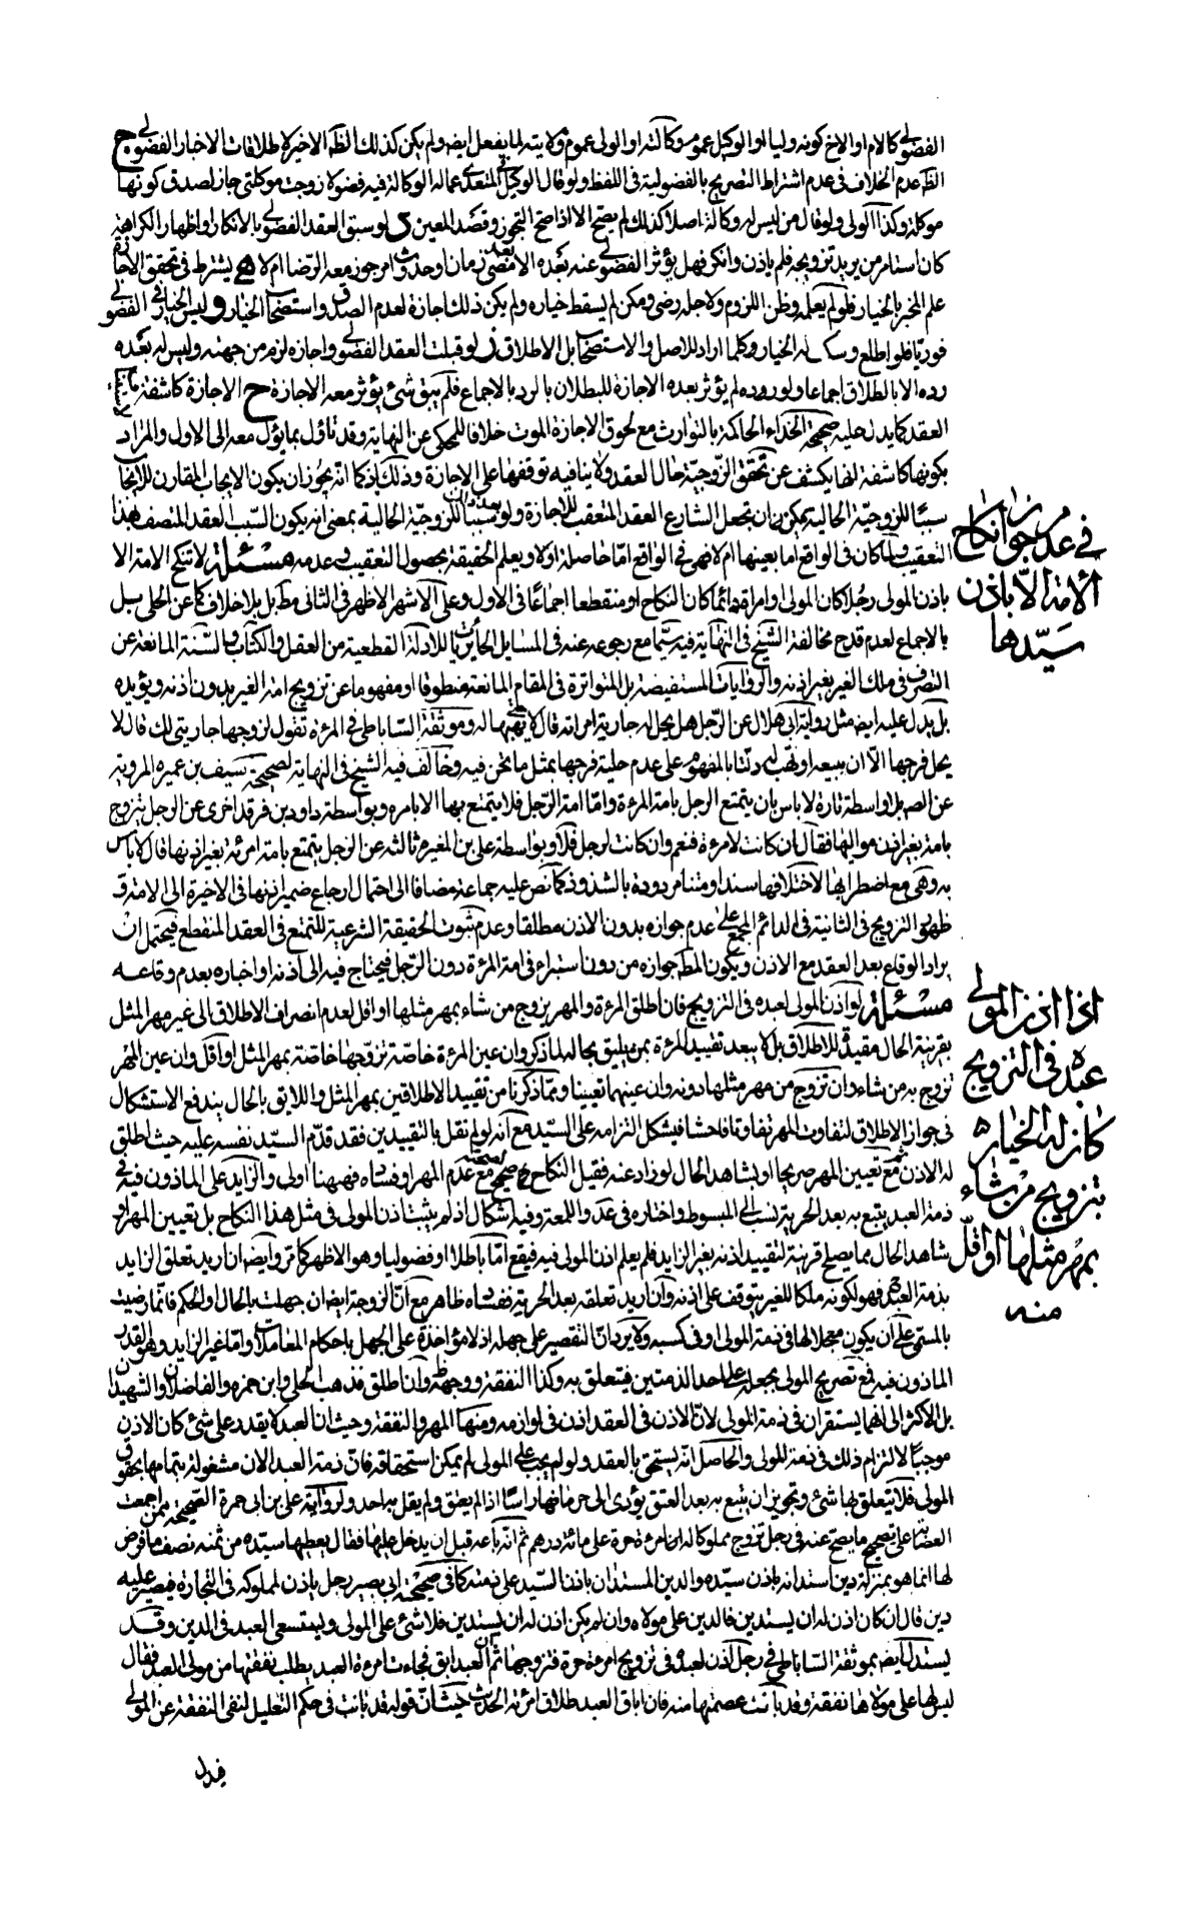 الفضولي كالام او الاخ كونه وليا او الوكيل عموم وكالته او الولى عموم ولايته لما يفعل ايضا ولم يكن كذلك الظ الاخير لاطلاقات الاخبار الفضولي ج
الظ عدم الخلاف فى عدم اشتراط التصريح بالفضولية فى اللفظ ولو قال الوكيل المتعدى عماله الوكالة فيه فضولا زوجت موكلتى جاز لصدق كونها
موكلة وكذا الولى ولو قال من ليس له وكالة اصلا كذلك لم يصح الا اذا صح التجوز وقصد المعين ى لو سبق العقد الفضولي بالانكار او اظهار الكراهة
كان استامر من يريد تزويجه فلم ياذن وانكر فهل يؤثر الفضولي عنه بعده الا مضى زمان او حدوث امر جوز معه الرضا ام لا يشترط فى تحقق الاجازة
علم المخبر بالخيار فلو لم يعلمه وظن اللزوم ولاجله رضى ومكن لم يسقط خياره ولم يكن ذلك اجازة لعدم الصدق واستصحاب الخيار و ليس الخيار فى الفضولي
فوريا فلو اطلع وسكت له الخيار وكلما اراد للاصل والاستصحاب بل الاطلاق ز لو قبلت العقد الفضولي واجازه لزم من جهته وليس له بعده
رده الا بالطلاق اجماعا ولو رده لم يؤثر بعده الاجازة للبطلان بالرد بالاجماع فلم يبق شئ يؤثر معه الاجازة ح الاجازة كاشفة
العقد كما يدل عليه صحيحة الحذاء الحاكمة بالتوارث مع لحوق الاجازة الموت خلافا للمحكى عن النهاية وقد تاؤل بما يؤل معه الى الاول والمراد
بكونها كاشفة انها يكشف عن تحقق الزوجية حال العقد ولا ينافيه توقفها على الاجازة وذلك اذ كما انه يجوز ان يكون الايجاب المقارن للايجاب
سببا للزوجية الحالية يمكن ان تجعل الشارع العقد المتعقب للاجازة ولو بعد سببا للزوجية الحالية بمعنى انه يكون السبب العقد المتصف بهذا
التعقيب ولما كان فى الواقع اما يعينها ام لا فهى فى الواقع اما حاصلة اولا ويعلم الحقيقة بحصول التعقيب وعدمه مسئلة لا تنكح الامة الا
باذن المولى رجلا كان المولى وامراة دائما كان النكاح او منقطعا اجماعا فى الاول وعلى الاشهر الاظهر فى الثانى مط بل بلا خلاف كما عن الحلى بل
بالاجماع لعدم قدح مخالفة الشيخ فى النهاية فيه سيما مع رجوعه عنه فى المسايل الحائريات للادلة القطعية من العقل والكتاب والسنة المانعة عن
التصرف فى ملك الغير بغير اذنه والروايات المستفيضة بل المتواترة فى المقام المانعة منطوقا او مفهوما عن تزويج امة الغير بدون اذنه ويؤيده
بل يدل عليه ايضا مثل رواية ابى هلال عن الرجل هل يحل له جارية امراته قال لا يهبها له وموثقة الساباطى فى المرءة تقول لزوجها جاريتى لك قال لا
يحل فرجها الا ان يبيعه او تهب له دلتا بالمفهوم على عدم حلية فرجها بمثل ما نحن فيه وخالف فيه الشيخ فى النهاية لصحيحة سيف بن عميره المروية
عن الص بلا واسطة تارة لا باس بان يتمتع الرجل بامة المرءة واما امة الرجل فلا يتمتع بها الا بامره وبواسطة داود بن فرقد اخرى عن الرجل تزوج
بامة بغير اذن مواليها فقال ان كانت لامرءة فنعم وان كانت لرجل فلا وبواسطة على بن المغيره ثالثه عن الرجل يتمتع بامة امرئة بغير اذنها قال لا باس
به وهى مع اضطرابها لاختلافها سندا ومتنا مردودة بالشذوذ كما نص عليه جماعة مضافا الى احتمال ارجاع ضمير اذنها فى الاخيرة الى الامة و
ظهور التزويج فى الثانية فى الدائم المجمع على عدم جوازه بدون الاذن مطلقا وعدم ثبوت الحقيقة الشرعية للتمتع فى العقد المنقطع فيحتمل ان
يراد الوقاع بعد العقد مع الاذن ويكون المط جوازه من دون استبراء فى امة المرءة دون الرجل فيحتاج فيه الى اذنه او اخباره بعدم وقاعه
مسئلة لو اذن المولى لعبده فى التزويج فان اطلق المرءة والمهر يزوج من شاء بمهر مثلها او اقل لعدم انصراف الاطلاق الى غير مهر المثل
بقرينة الحال مقيدة للاطلاق بل لا يبعد تقييد المرءة بمن يليق بحاله لما ذكر وان عين المرءة خاصة تزوجها خاصة بمهر المثل او اقل وان عين المهر
تزوج به من شاء وان تزوج من مهر مثلها دونه وان عينهما تعينا ومما ذكرنا من تقييد الاطلاقين بمهر المثل واللايق بالحال يندفع الاستشكال
فى جواز الاطلاق لتفاوت المهر تفاوتا فاحشا فيشكل التزامه على السيد مع انه لو لم نقل بالتقييدين فقد قدم السيد نفسه عليه حيث اطلق
له الاذن ثم مع تعيين المهر صريحا او بشاهد الحال لو زاد عنه فقيل النكاح صحيح مع عدم المهر او فساه فههنا اولى والزايد على الماذون فيه فى
ذمة العبد يتبع به بعد الحرية نسب الى المبسوط واختاره فى عد واللمعة وفيه اشكال اذ لم يثبت اذن المولى فى مثل هذا النكاح بل تعيين المهر او
شاهد الحال بما يصلح قرينة لتقييد اذنه بغير الزايد فلم يعلم اذن المولى فيه فيقع اما باطلا او فضوليا وهو الاظهر كما مر وايضا ان اريد تعلق الزايد
بذمة العبد فهو لكونه ملكا للغير يتوقف على اذنه وان اريد تعلقه بعد الحرية ففساده ظاهر مع ان الزوجة ايضا ان جهلت بالحال والحكم فانما رضيت
بالمسمى على ان يكون معجلا لها فى ذمة المولى او فى كسبه ولا يرد ان التقصير على جهله اذ لا مؤاخذة على الجهل باحكام المعاملات واما غير الزايد وهو القدر
الماذون فيه فمع تصريح المولى بجعله على احد الذمتين فيتعلق به وكذا النفقة ووجهه ظ وان اطلق فذهب الحلى وابن حمزه والفاضلان والشهيدان
بل الاكثر الى انهما يستقران فى ذمة المولى لان الاذن فى العقد اذن فى لوازمه ومنها المهر والنفقة وحيث ان العبد لا يقدر على شئ كان الاذن
موجبا لالتزام ذلك فى ذمة المولى والحاصل انه يستحق بالعقد ولو لم يجب على المولى لم يمكن استحقاقه فان ذمة العبد الان مشغولة بتمامها بحقوق
المولى فلا يتعلق بها شئ وتجويز ان يتبع به بعد العتق يؤدى الى حرمانها راسا اذا لم يعتق ولم يقل به احد ولرواية على بن ابى حمزة الصحيحة عمن اجمعت
العصابة على تصحيح ما يصح عنه فى رجل تزوج مملوكا له امرءة حرة على مائة درهم ثم انه باعه قبل ان يدخل عليها فقال يعطيها سيده من ثمنه نصف ما فرض
لها انما هو بمنزلة دين استدانه باذن سيده والدين المستدان باذن السيد على ذمته كما فى صحيحة ابى بصير رجل ياذن لمملوكه فى التجارة فيصير عليه
دين قال ان كان اذن له ان يستدين فالدين على مولاه وان لم يكن اذن له ان يستدين فلا شئ على المولى ويستسعى العبد فى الدين وقد
يستدل ايضا بموثقة الساباطى فى رجل اذن لعبده فى تزويج امرءة حرة فتزوجها ثم ان العبد ابق فجاءت امرءة العبد يطلب نفقتها من مولى العبد فقال
ليس لها على مولاها نفقة وقد بانت عصمتها منه فان اباق العبد طلاق امرئته الحديث حيث ان قوله قد بانت فى حكم التعليل لنفى النفقة عن المولى
فيدل
فى عدم جواز نكاح
الامة الا باذن
سيدها
اذا اذن المولى
عبده فى التزويج
كان له الخيار
بتزويج من شاء
بمهر مثلها او اقل
منه